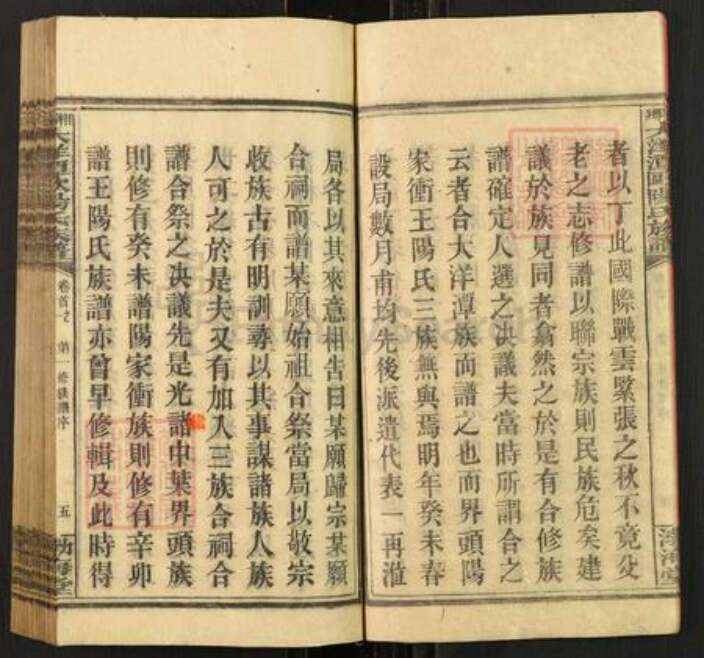 者以丁此國際戰雲緊張之秋不竟殳
老之志修譜以聯宗族則民族危矣建
議於族見同者翕然之於是有合修族
譜確定人選之决議夫當時所謂合之
云者合大洋潭族而譜之也而界頭陽
家衝王陽氏三族無與焉明年癸未春
設局數月甫均先後派遣代表一再淮
局各以其來意相吿曰某願歸宗某願
合祠而譜某願始祖合祭當局以敬宗
收族古有明訓尋以其事謀諸族人族
人可之於是夫又有加入三族合祠合
譜合祭之决議先是光諸中葉界頭族
則修有癸未譜陽家衝族則修有辛卯
譜王陽氏族譜亦曾早修輯及此時得
卷首之
第一修族譜序
五